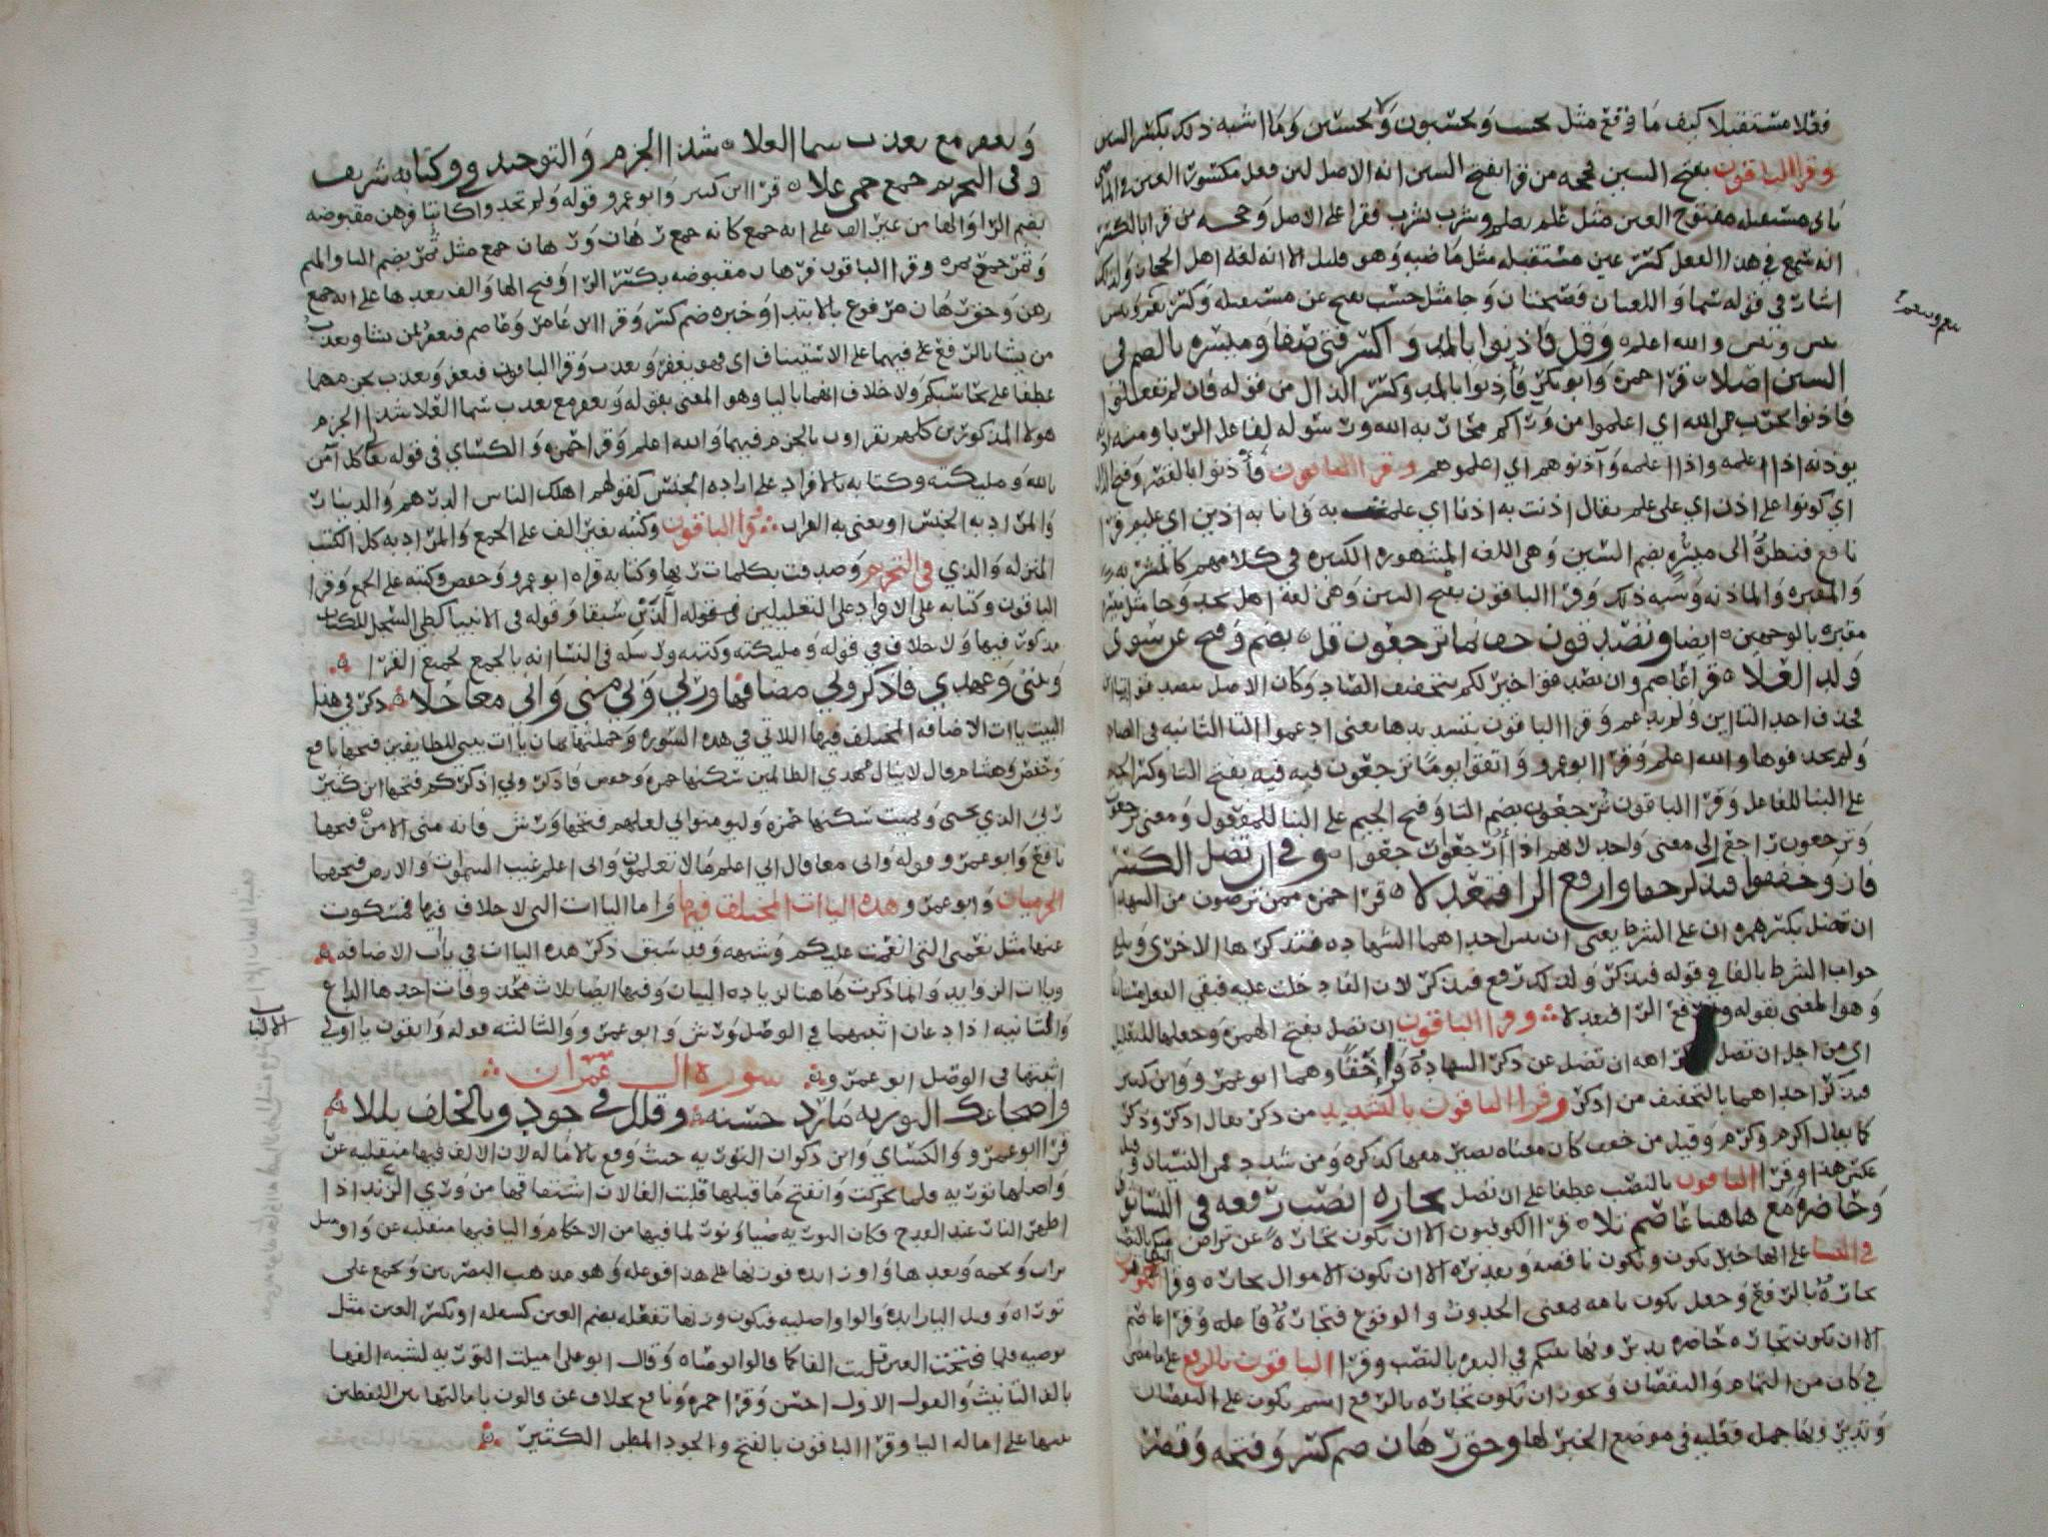 فعلا مستقبلا كيف ما وقع مثل يحسب ويحسبون ولا يحسبن وما اشبه ذلك بكسر السين
وقرا الباقون بفتح السين فحجه من قرا بفتح السين انه الاصل لان فعل مكسور العين في الماضي
ياتي مستقبله مفتوح العين مثل علم يعلم وشرب يشرب فقرا على الاصل وحجه من قرا بالكسر
انه سمع في هذا الفعل كسر عين مستقبله مثل ماضيه وهو قليل الا انه لغه اهل الحجاز ولذلك
اشار في قوله سما
والله اعلم وقل فاذنوا بالمد واكسر فتى صفا وميسره بالضم في
السين اصلا قرا حمزه وابو بكر فاذنوا بالمد وكسر الذال من قوله فان لم تفعلوا
فاذنوا بحرب من الله اي اعلموا من وراكم محاربه الله ورسوله لفاعل الربا ومنه
يوذنه اذا اعلمه وآذنوهم اي اعلموهم وقرا الباقون فاذنوا بالقصر وفتح الذال
اي كونوا على اذن اي على علم يقال اذنت به اذنا اي علمت به فانا به اذين اي عليم قرا
نافع فنظرة الى ميسره بضم السين وهي اللغه المشهوره الكثيره في كلامهم كالمشربه
والمقبره والماذنه وشبه ذلك وقرا الباقون بفتح السين وهي لغه اهل نجد وجا مثل
مقبره بالوجهين ايضا وتصدقون خف نما ترجعون قل بضم وفتح عن سوى
ولد العلا قرا عاصم وان تصدقوا خير لكم بتخفيف الصاد وكان الاصل تتصدقوا
فحذف احد التاين ولم يدغم وقرا الباقون بتشديدها يعني ادغموا التا الثانيه في الصاد
ولم يحذفوها والله اعلم وقرا ابو عمرو واتقوا يوما ترجعون فيه بفتح التا وكسر الجيم
على البنا للفاعل وقرا الباقون ترجعون بضم التا وفتح الجيم على البنا للمفعول ومعنى ترجعون
وترجعون راجع الى معنى واحد لانهم اذا ارجعوا رجعوا وفي ان تضل الكسر
فاز وخففوا فتذكر حقا وارفع الرا فتعدلا قرا حمزه ممن ترضون من الشهدا
ان تضل بكسر همزه ان على الشرط يعني ان نسى احداهما الشهاده فتذكرها الاخرى
جواب الشرط بالفا في قوله فتذكر ولذلك رفع فتذكر لان الفا دخلت عليه فبقي الفعل
وهو المعنى بقوله وارفع الرا فتعدلا وقرا الباقون ان تضل بفتح الهمزه وجعلها للتعليل
اي من اجل ان تضل اي كراهه ان تضل عن ذكر الشهاده وحقا وهما ابو عمرو وابن كثير
فتذكر احداهما بالتخفيف من اذكر وقرا الباقون بالتشديد من ذكر يقال اذكر وذكر
كما يقال اكرم وكرم وقيل من خفف كان معناه تصير معها كذكره ومن شدد فمن النسيان وقيل
عكس هذا وقرا الباقون بالنصب عطفا على ان تضل تجاره انصب رفعه في النسا
وحاضره مع هاهنا عاصم تلا قرا الكوفيون الا ان تكون تجارة عن تراض منكم بالنصب
في النسا على انها خبر تكون وتكون ناقصه وتقديره الا ان تكون الاموال تجاره وقرا
تجارة بالرفع وجعل تكون تامه بمعنى الحدوث والوقوع فتجارة فاعله وقرا عاصم
الا ان تكون تجاره حاضره تديرونها بينكم في البقره بالنصب وقرا الباقون بالرفع على ما مضى
في كان من التمام والنقصان ويجوز ان تكون تجاره بالرفع اسم تكون على النقصان
وتديرونها جمله فعليه في موضع الخبر لها وحق رهان ضم كسر وفتحه وقصر
ويغفر مع يعذب سما العلا شذا الجزم والتوحيد في وكتابه شريف
وفي التحريم جمع حمى علا قرا ابن كثير وابو عمرو قوله ولم تجدوا كاتبا فرهن مقبوضه
بضم الرا والها من غير الف على انه جمع كانه جمع رهان ورهان جمع مثل ثمر بضم الثا والميم
وثمر جمع ثمره وقرا الباقون فرهان مقبوضه بكسر الرا وفتح الها والف بعدها على انه جمع
رهن وحق رهان مرفوع بالابتدا وخبره ضم كسر وقرا ابن عامر وعاصم فيغفر لمن يشا ويعذب
من يشا بالرفع على فيهما على الاستيناف اي فهو يغفر ويعذب وقرا الباقون فيغفر ويعذب بجزمهما
عطفا على يحاسبكم ولا خلاف انهما باليا وهو المعنى بقوله ويغفر مع يعذب سما العلا شذا الجزم
هولا المذكورين كلهم يقراون بالجزم فيهما والله اعلم وقرا حمزه والكساي في قوله تعا كل آمن
بالله ومليكته وكتابه بالافراد على اراده الجنس كقولهم اهلك الناس الدرهم والدينار
والمراد به الجنس او يعني به القران وقرا الباقون وكتبه بغير الف على الجمع والمراد به كل الكتب
المنزله والذي في التحريم وصدقت بكلمات ربها وكتابه قراه ابو عمرو وحفص وكتبه على الجمع وقرا
الباقون وكتابه على الافراد على التعليلين في
يذكرن فيها ولا خلاف في قوله ومليكته وكتبه ورسله في النسا انه بالجمع لجميع القرا
وبيتي وعهدي فاذكروني مضافها وربي وبي مني واني معا حلا ذكر في هذا
البيت ياات الاضافه المختلف فيها اللاتي في هذه السوره وجملتها ثمان ياات بيتي للطايفين فتحها نافع
وحفص وهشام قال لا ينال عهدي الظالمين سكنها حمزه وحفص فاذكروني اذكركم فتحها ابن كثير
ربي الذي يحيى ويميت سكنها حمزه وليومنوا بي لعلهم فتحها ورش فانه مني الا من فتحها
نافع وابو عمرو وقوله واني معا قال اني اعلم ما لا تعلمون واني اعلم غيب السموات والارض فتحهما
الحرميان وابو عمرو وهذه الياات المختلف فيها واما الياات التي لا خلاف فيها فمسكوت
عنها مثل نعمتي التي انعمت عليكم وشبهه وقد سبق ذكر هذه الياات في باب الاضافه
وياات الزوايد وانما ذكرت هاهنا لزياده البيان وفيها ايضا ثلاث محذوفات احدها الداع
والثانيه اذا دعان اثبتهما في الوصل ورش وابو عمرو والثالثه قوله واتقون يا اولي
اثبتها في الوصل ابو عمرو سورة ال عمران
واضجاعك التوريه ما رد حسنه وقلل في جود وبالخلف بللا
قرا ابو عمرو والكساي وابن ذكوان التوريه حيث وقع بالاماله لان الالف فيها منقلبه عن
واصلها توريه فلما تحركت وانفتح ما قبلها قلبت الفا لان اشتقاقها من وري الزند اذا
اظهر النار عند القدح فكان التوريه ضيا ونور لما فيها من الاحكام واليا فيها منقلبه عن واو مثل
تراب وتخمه وبعدها واو زايده فوزنها على هذا فوعله وهو مذهب البصريين وتجمع على
توراه وقيل التا زايده والواو اصليه فيكون وزنها تفعله بضم العين او بكسر العين مثل
توصيه فلما فتحت العين قلبت الفا كما قالوا توصاه وقال ابو علي اميلت التوريه لشبه الفها
بالف التانيث والقول الاول احسن وقرا حمزه ونافع بخلاف عن قالون بامالتها بين اللفظين
تنبيها على اماله اليا وقرا الباقون بالفتح والجود المطر الكثير